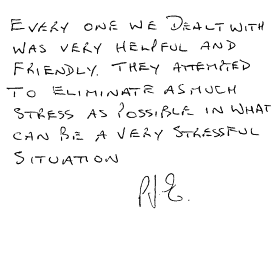 EVERY ONE WE DEALT WITH
WAS VERY HELPFUL AND
FRIENDLY. THEY ATTEMPTED
TO ELIMINATE AS MUCH
STRESS AS POSSIBLE IN WHAT
CAN BE A VERY STRESSFUL
SITUATION